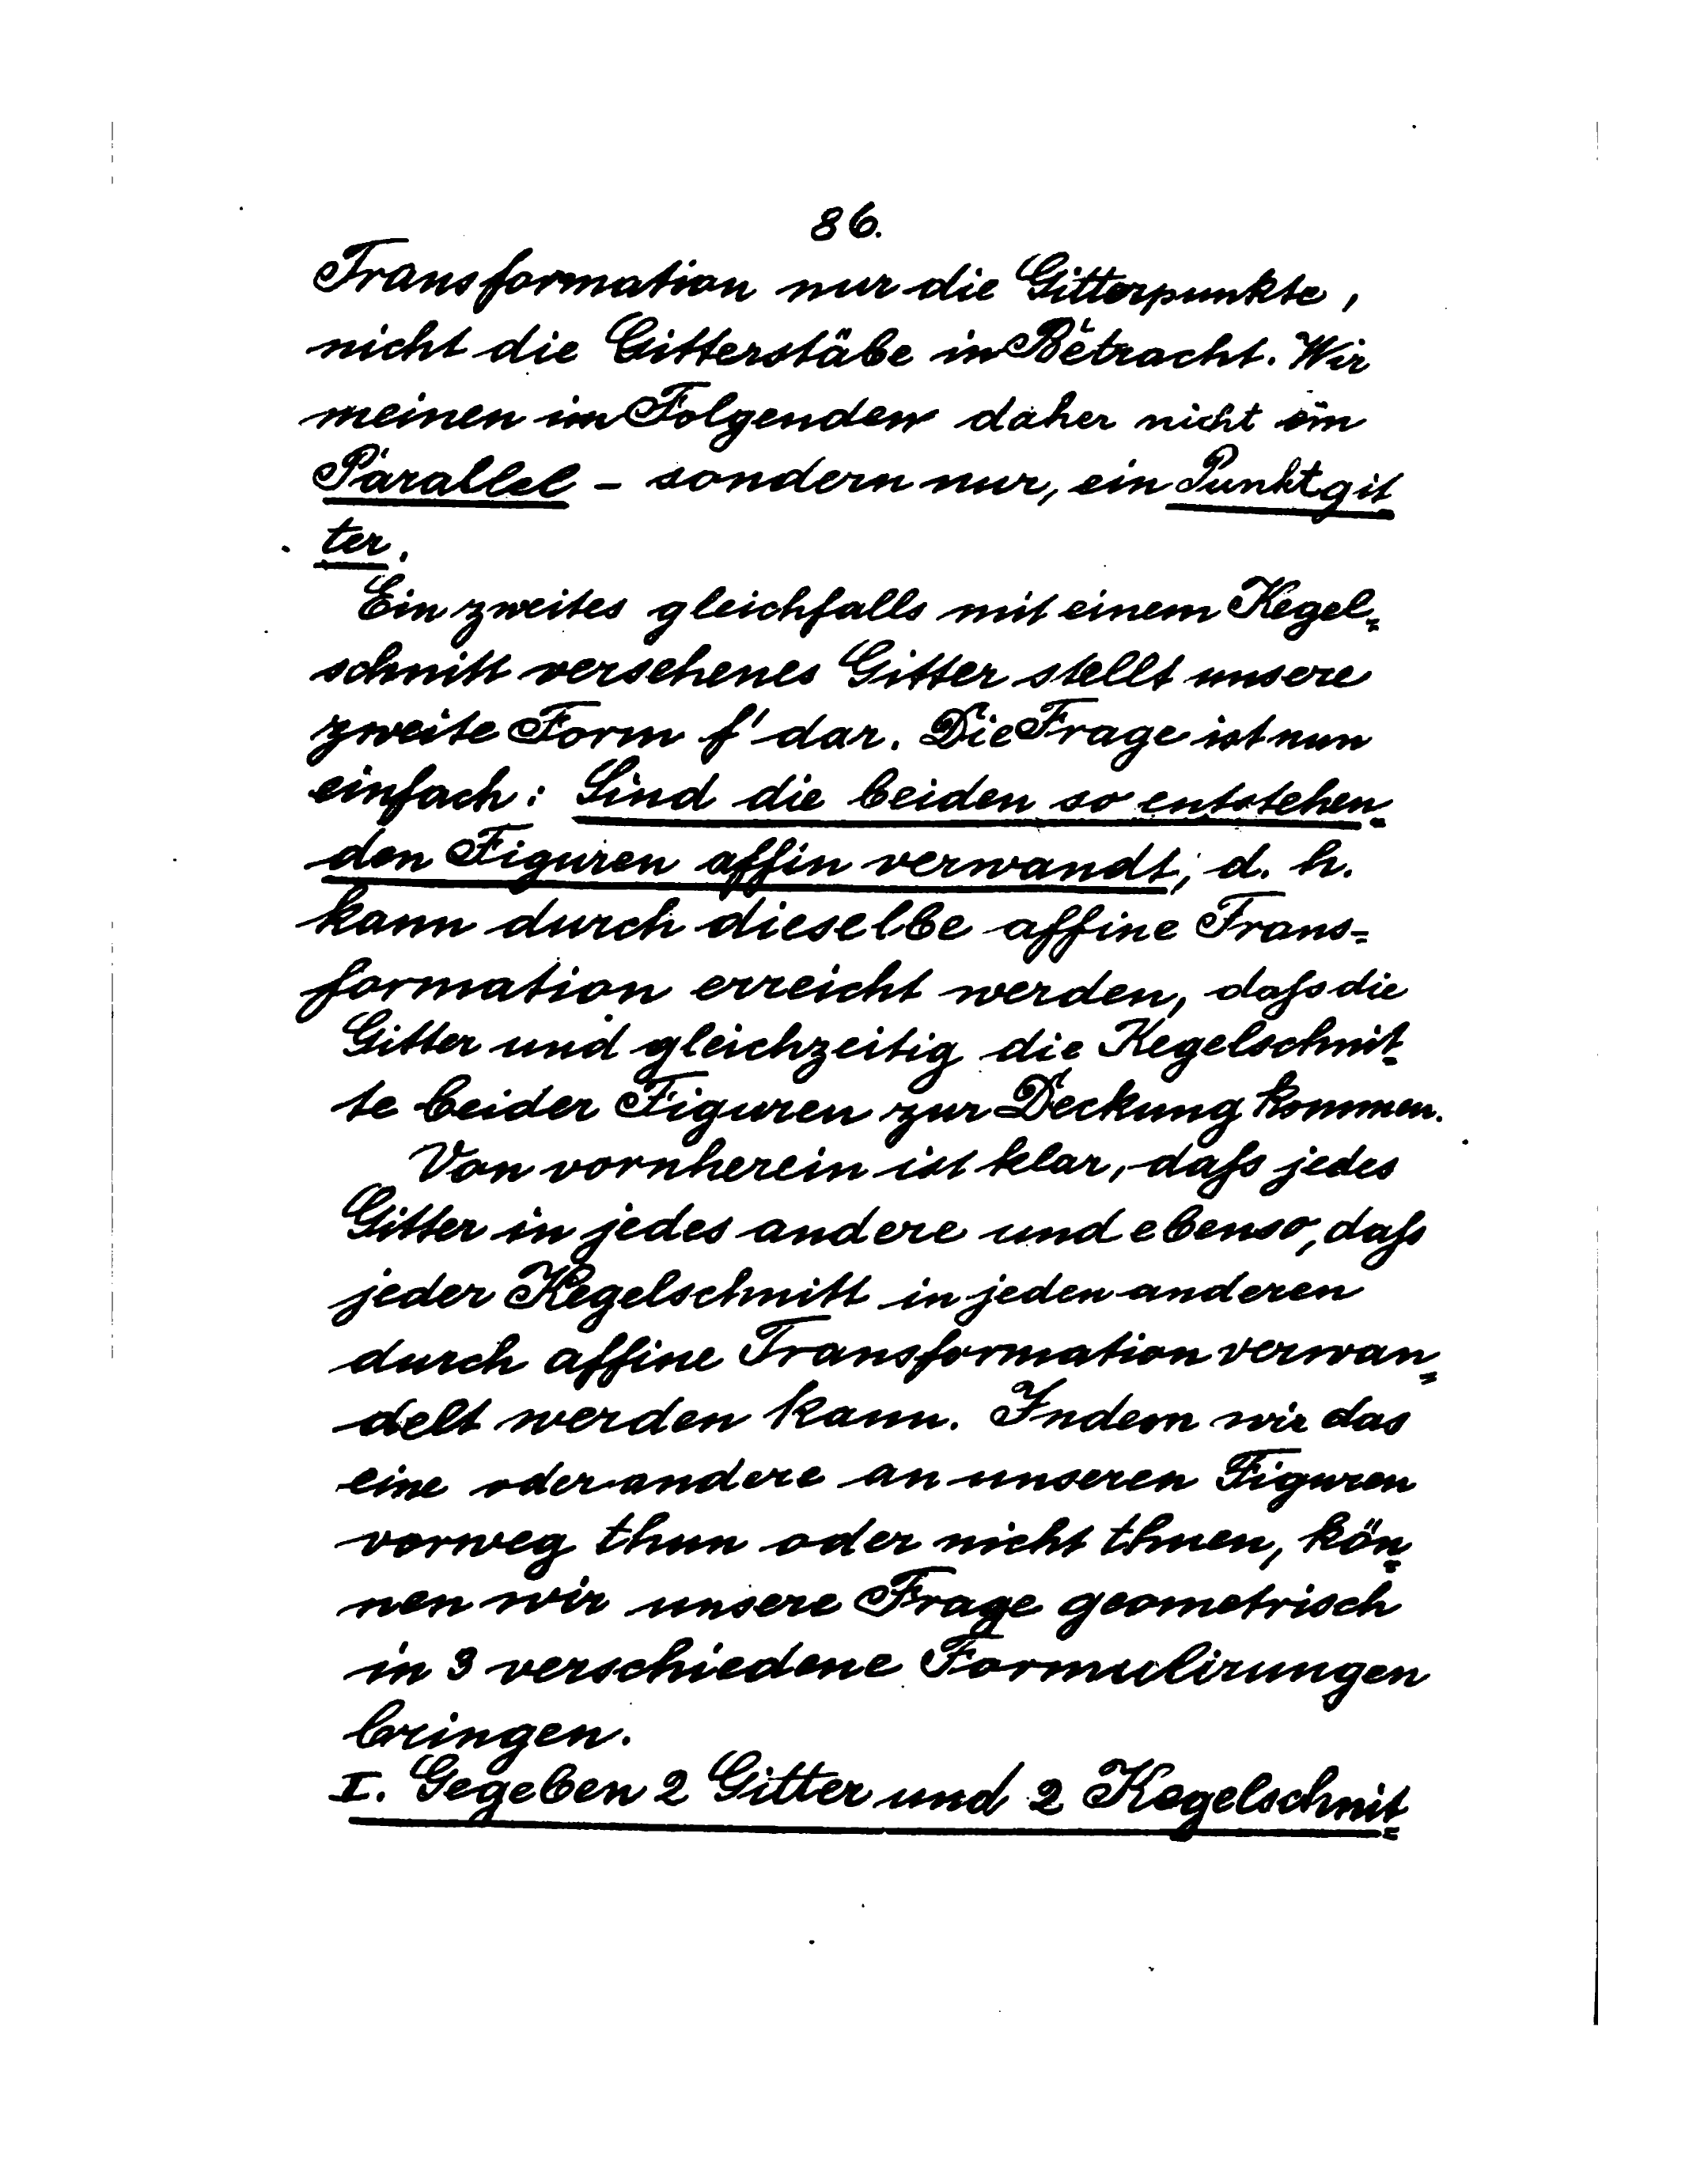 86.
Transformation nur die Gitterpunkte,
nicht die Gitterstäbe in Betracht. Wir
meinen im Folgenden daher nicht ein
Parallel - sondern nur, ein Punktgit
ter.
Ein zweites gleichfalls mit einem Kegel=
schnitt versehenes Gitter stellt unsere
zweite Form f' dar. Die Frage ist nun
einfach: Sind die beiden so entstehen=
den Figuren affin verwandt, d. h.
kann durch dieselbe affine Trans=
formation erreicht werden, daſs die
Gitter und gleichzeitig die Kegelschnit=
te beider Figuren zur Deckung kommen.
Von vornherein ist klar, daſs jedes
Gitter in jedes andere und ebenso, daſs
jeder Kegelschnitt in jeden anderen
durch affine Transformation verwan=
delt werden kann. Indem wir das
eine oder andere an unseren Figuren
vorweg thun oder nicht thuen, kön=
nen wir unsere Frage geometrisch
in 3 verschiedene Formulirungen
bringen.
I. Gegeben 2 Gitter und 2 Kegelschnit=